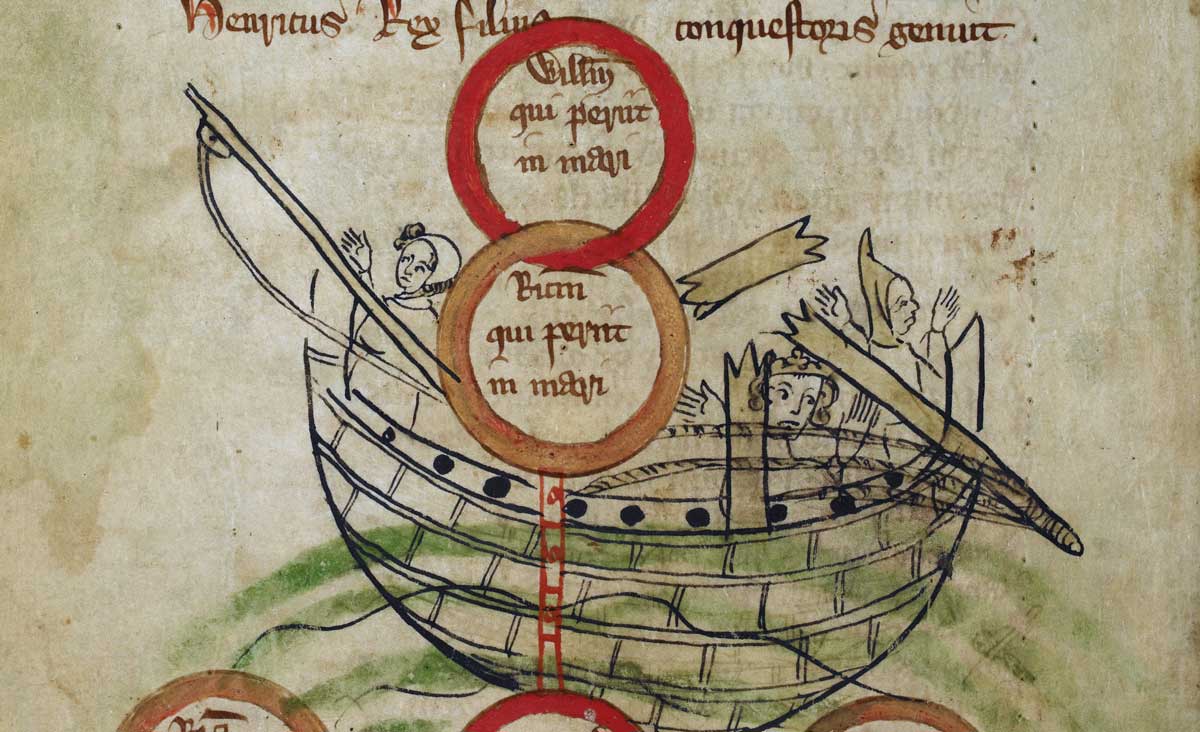 Henricus Rex filius conquestoris genuit
Willm̄
qui periit
in mari
Ricm
qui periit
in mari
Ric̄